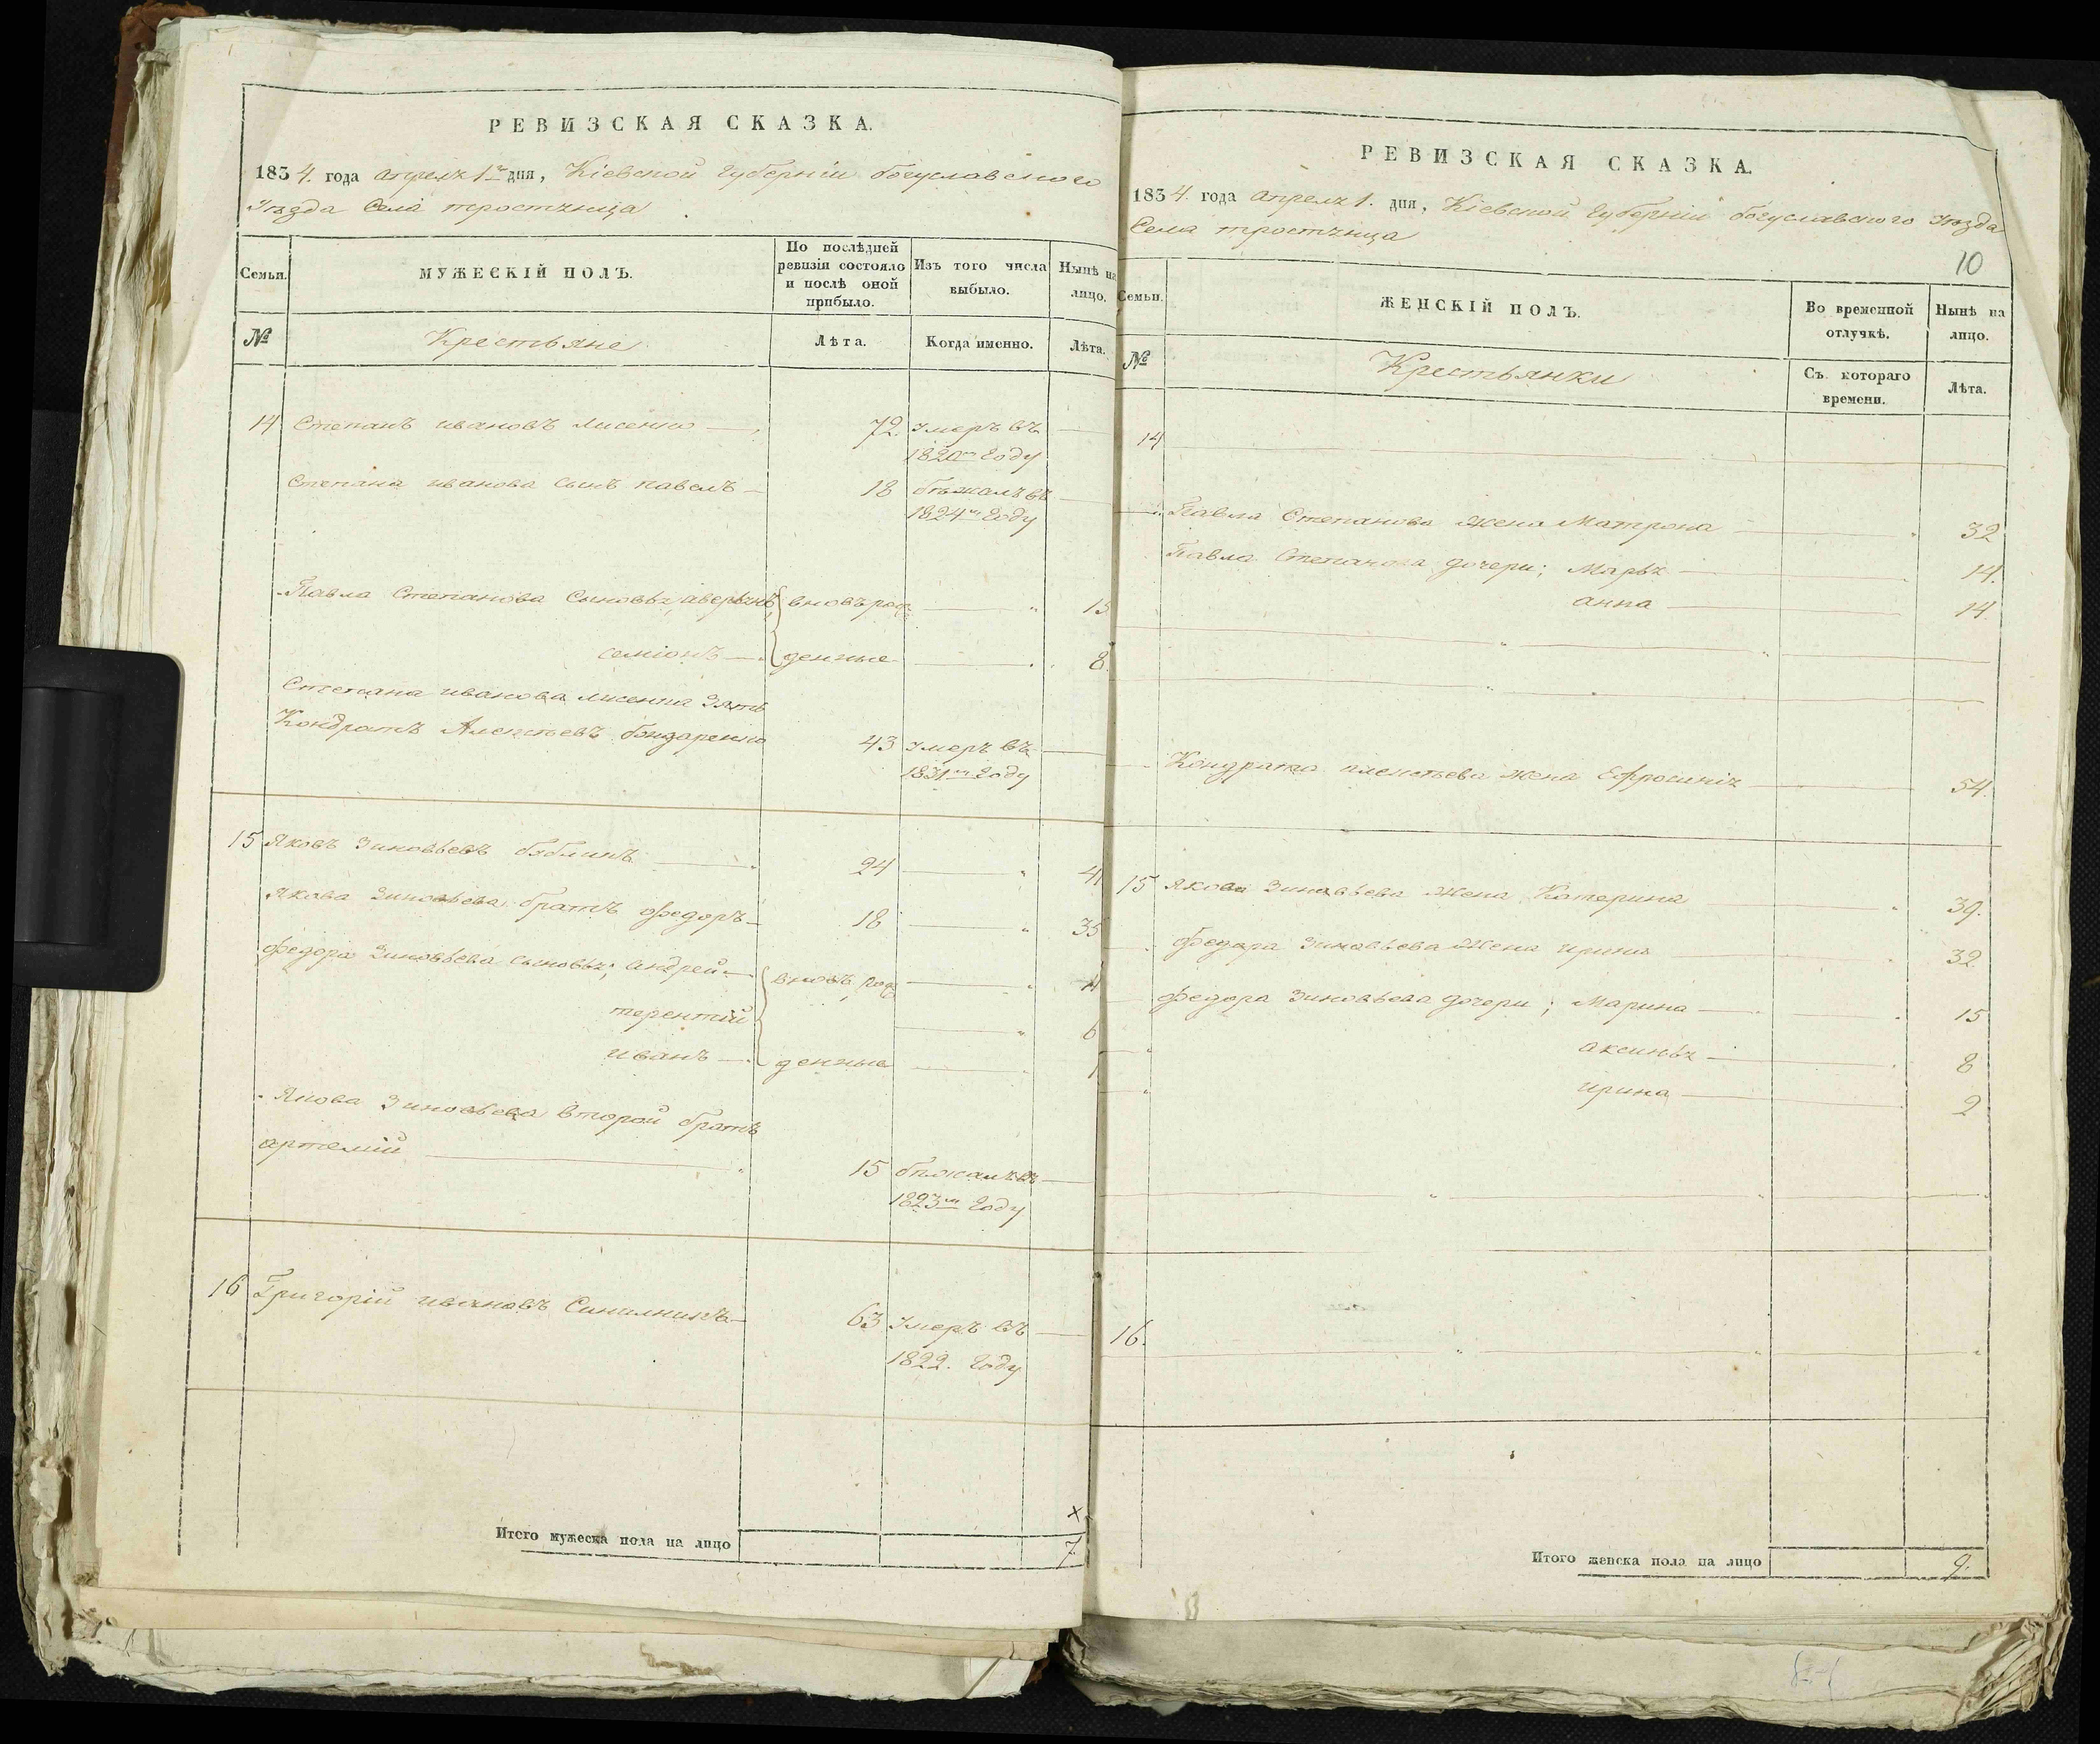 РЕВИЗСКАЯ СКАЗКА.
1834. года апреля 1го дня, Кіевской Губерніи богуславского
Уезда Села тростинца
Семьи.
МУЖЕСКІЙ ПОЛЪ.
По послѣдней ревизіи состояло и послѣ оной прибыло.
Изъ того числа выбыло.
Нынѣ на лицо.
№
Крестьяне
Лѣта.
Когда именно.
Лѣта.
14 Степанъ ивановъ лисенко 72. Умеръ въ
1820м Году
Степана иванова сынъ павелъ 18 бѣжалъ въ
1824м Году
Павла Степанова Сыновья, аверьянъ вновь рож 13
семіонъ денные 8.
Степана иванова лисенка Зять
Кондратъ бондаренко 43 Умеръ въ
1831м Году
15 Яковъ Зиновьевъ бублинъ 24 41
Якова Зиновьева братъ федоръ 18 35
федора Зиновьева сыновья; андрей вновь рож
терентій 6
иванъ денные 1
Якова Зиновьева второй братъ
артемій 15 бѣжалъ въ
1823м Году
16 Григорій ивановъ 63 Умеръ въ
1822. Году
Итого мужеска пола на лицо 7.
РЕВИЗСКАЯ СКАЗКА.
1834. года апреля 1. дня, Кіевской Губерніи богуславского Уезда
Села тростинца
10
Семьи.
ЖЕНСКІЙ ПОЛЪ.
Во временной отлучкѣ.
Нынѣ на лицо.
№
Крестьянки
Съ котораго времени.
Лѣта.
14
Павла Степанова жена Матрона 32
Павла Степанова дочери; Марья 14.
анна 14.
Кондрата жена Ефросинія 54.
15 Якова Зиновьева жена Катерина 39.
федора Зиновьева жена ирина 32
федора Зиновьева дочери; Марина 15
аксинья 8
ирина 2
16.
Итого женска пола на лицо 9.